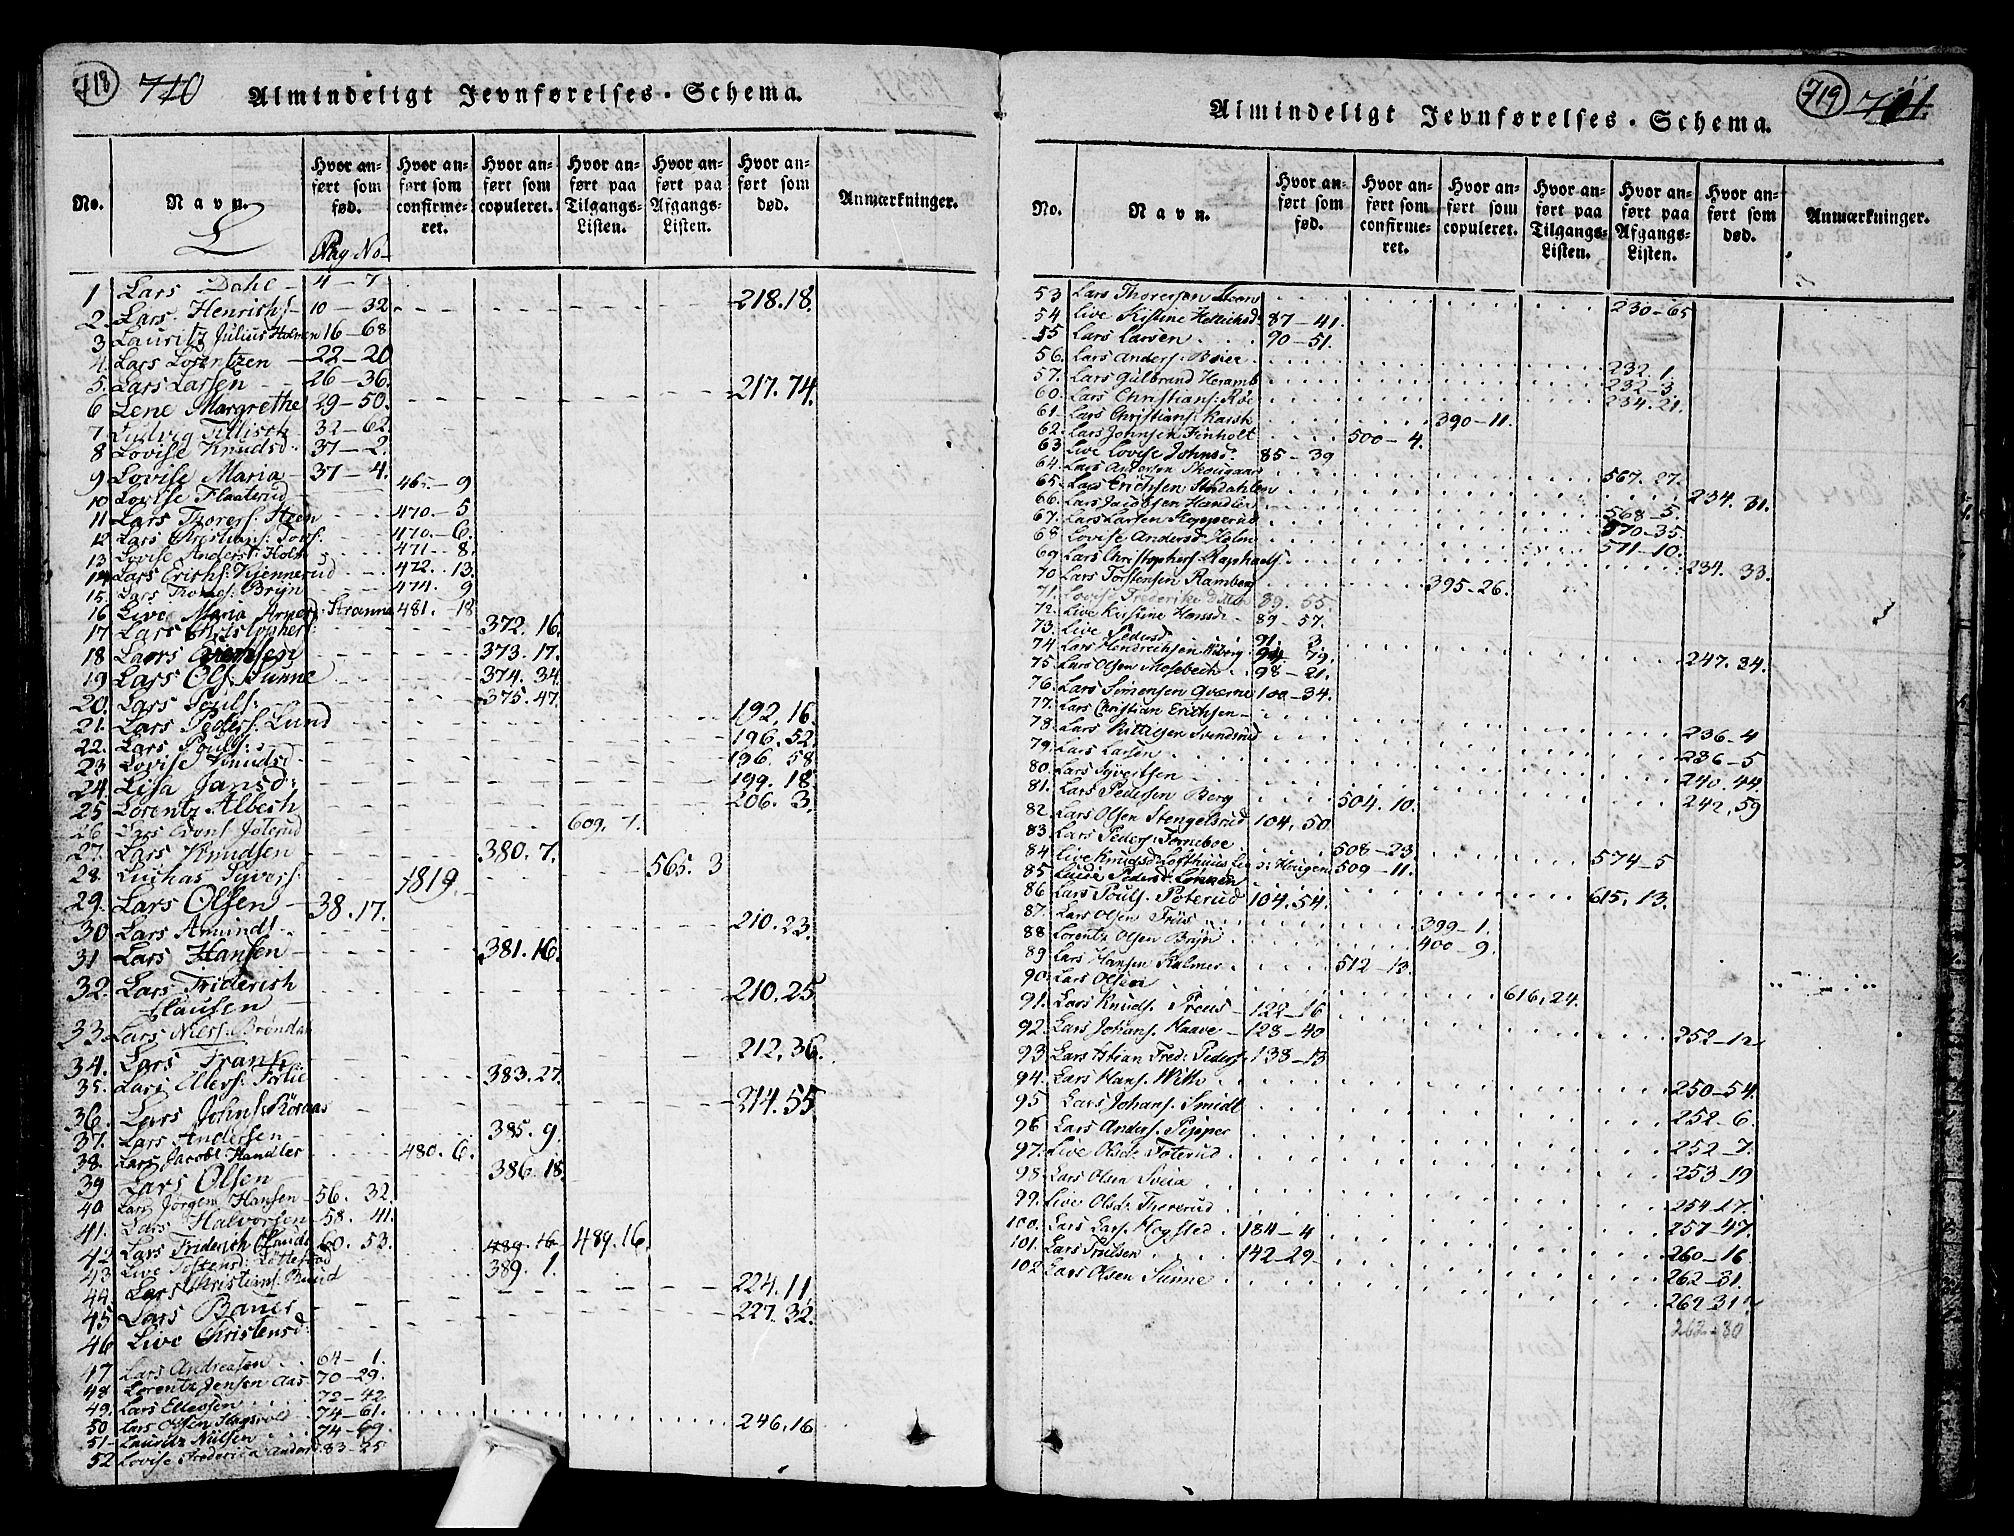 718 710 Almindeligt Jevnførelses-Schema.
No. Navn. Hvor anført som fød. Hvor anført som confirmeret. Hvor anført som copuleret. Hvor anført paa Tilgangs-Listen. Hvor anført paa Afgangs-Listen. Hvor anført som død. Anmærkninger.
L Pag No
1 Lars Dahl 4-7
2. Lars Henrichs: 10-32 218.18.
3 Lauritz Julius Holmen 16-68
4. Lars Lorentzen 22-20
5. Lars Larsen 26-36.
6 Lene Margrethe 29-50. 217.74.
7 Ludvig Tillisch 32-62
8 Lovise Knudsd: 37-2.
9 Lovise Maria 37-4.
10 Lovise Flaaterud 465-9
11 Lars Thorers: Steen 470-5
12 Lars Christians: 470-6.
13 Lovise Andersd: Holm 471-8.
14 Lars Erichs: Kjennerud 472.13.
15. Lars Thomes: Bryn 474.9
16 Live Maria Strømme 481.18
17 Lars Christophers: 372.16.
18 Lars 373.17.
19 Lars Ols: Sunne 374.34.
20. Lars Pouls: 375.47.
21. Lars Peders: Lund 192.16.
22. Lars Pouls: 196.52.
23 Lovise Knudsd. 196.58
24. Lisa Jansd: 199.18.
25 Lorentz Albech 206.3.
26 Lars Foterud 609.7.
27. Lars Knudsen 380.7.
28 Luchas Syvers: 565.3
29. Lars Olsen 38.17. 1819
30 Lars Amunds. 210.23.
31 Lars Hansen 381.16.
32. Lars Friderich Clausen 210.25
33. Lars Niels: Brøndal
34. Lars Frans. 212.36.
35. Lars Ellefs: 383.27.
36. Lars Johns: Røraas 214.55
37. Lars Andersen 385.9.
38. Lars Jacobs: Handler 480.6.
39 Lars Olsen 386.18.
40 Lars Jørgen Hansen 56.32.
41. Lars Halvorsen 58.41.
42 Lars Friderich Claus: 60.53. 489.16 489.16.
43 Live Tostensd: 389.1.
44 Lars Christians: Buud 224.11.
45 Lars Baner 227.32.
46 Live Christensd:
47 Lars Andreasen 64-1.
48 Lorentz Jensen Aas 70-29.
49. Lars Ellevsen 72-42
50 Lars Olsen 74-61. 246.16
51 Lauritz Nilsen 74-69.
52 Lovise Frederica Anders: 83-25
719 711 Almindeligt Jevnførelses-Schema.
No. Navn. Hvor anført som fød. Hvor anført som confirmeret. Hvor anført som copuleret. Hvor anført paa Tilgangs-Listen. Hvor anført paa Afgangs-Listen. Hvor anført som død. Anmærkninger.
53 Lars Thoresen Steen 230-65
54 Live Kistine Hellichsd. 87-41.
55 Lars Larsen 90-51.
56. Lars Anders: Bøier 232.1.
57. Lars Gulbrand Heramb 232-3.
60. Lars Christians: Røe 234.21.
61. Lars Christians: Kaish 390-11.
62. Lars Johnsen Finholt 500-4.
63 Live Lovise Johnsd: 85-39
64. Lars Andersen Skougaard 567.27.
65. Lars Erichsen Stordahlen 234.31.
66. Lars Jacobsen Handler 568-5.
67. Lars Larsen Klopperud 570-35.
68. Lovise Andersd: Holm 571-10.
69 Lars Christophers: Raphaels: 234.33.
70 Lars Torstensen Ramberg 395-26.
71. Lovise Frederike 89.55.
72. Live Kistine Hansd: 89-57.
73. Live Pedersd 91.3
74. Lars Hendrichsen Viberg 94 79. 247.34.
75 Lars Olsen Mosebech 98-21.
76. Lars Simensen Qværne 100-34.
77. Lars Christian Erichsen
78. Lars Kittilsen Svendsrud 236-4
79. Lars Larsen 236-5
80. Lars Syvertsen 240.44
81. Lars Pedersen Berg 504.10. 242.59
82 Lars Olsen Stengelsrud 104.50.
83. Lars Peders: Torneboe 508-23.
84 Live Knudsd: Lofthuus Haugen 509-11. 574-5
85. Pedersd:
86 Lars Pouls: Poterud 104.54. 615.13.
87. Lars Olsen Friis 399-1.
88 Lorentz Olsen Bryn 400-9.
89 Lars Hansen Kalmer 512-13.
90. Lars Olsen
91. Lars Knuds: Preus 122-16 616.24.
92. Lars Johans: Haave 123-40 252-12
93. Lars Fred: Peders: 133-13
94. Lars Hans: With 250-54.
95 Lars Johans: Smidt 252-6.
96 Lars Anders: Pipper 252-7.
97. Live Olsd: Foterud 253-19
98. Lars Olsen Sveia 254-17.
99. Live Olsd: Thorerud 257-47.
100. Lars Lars: Hogsted 184-4 260-16.
101. Lars Troelsen 142-29 262-31.
102 Lars Olsen Sunne 262 31
262-80